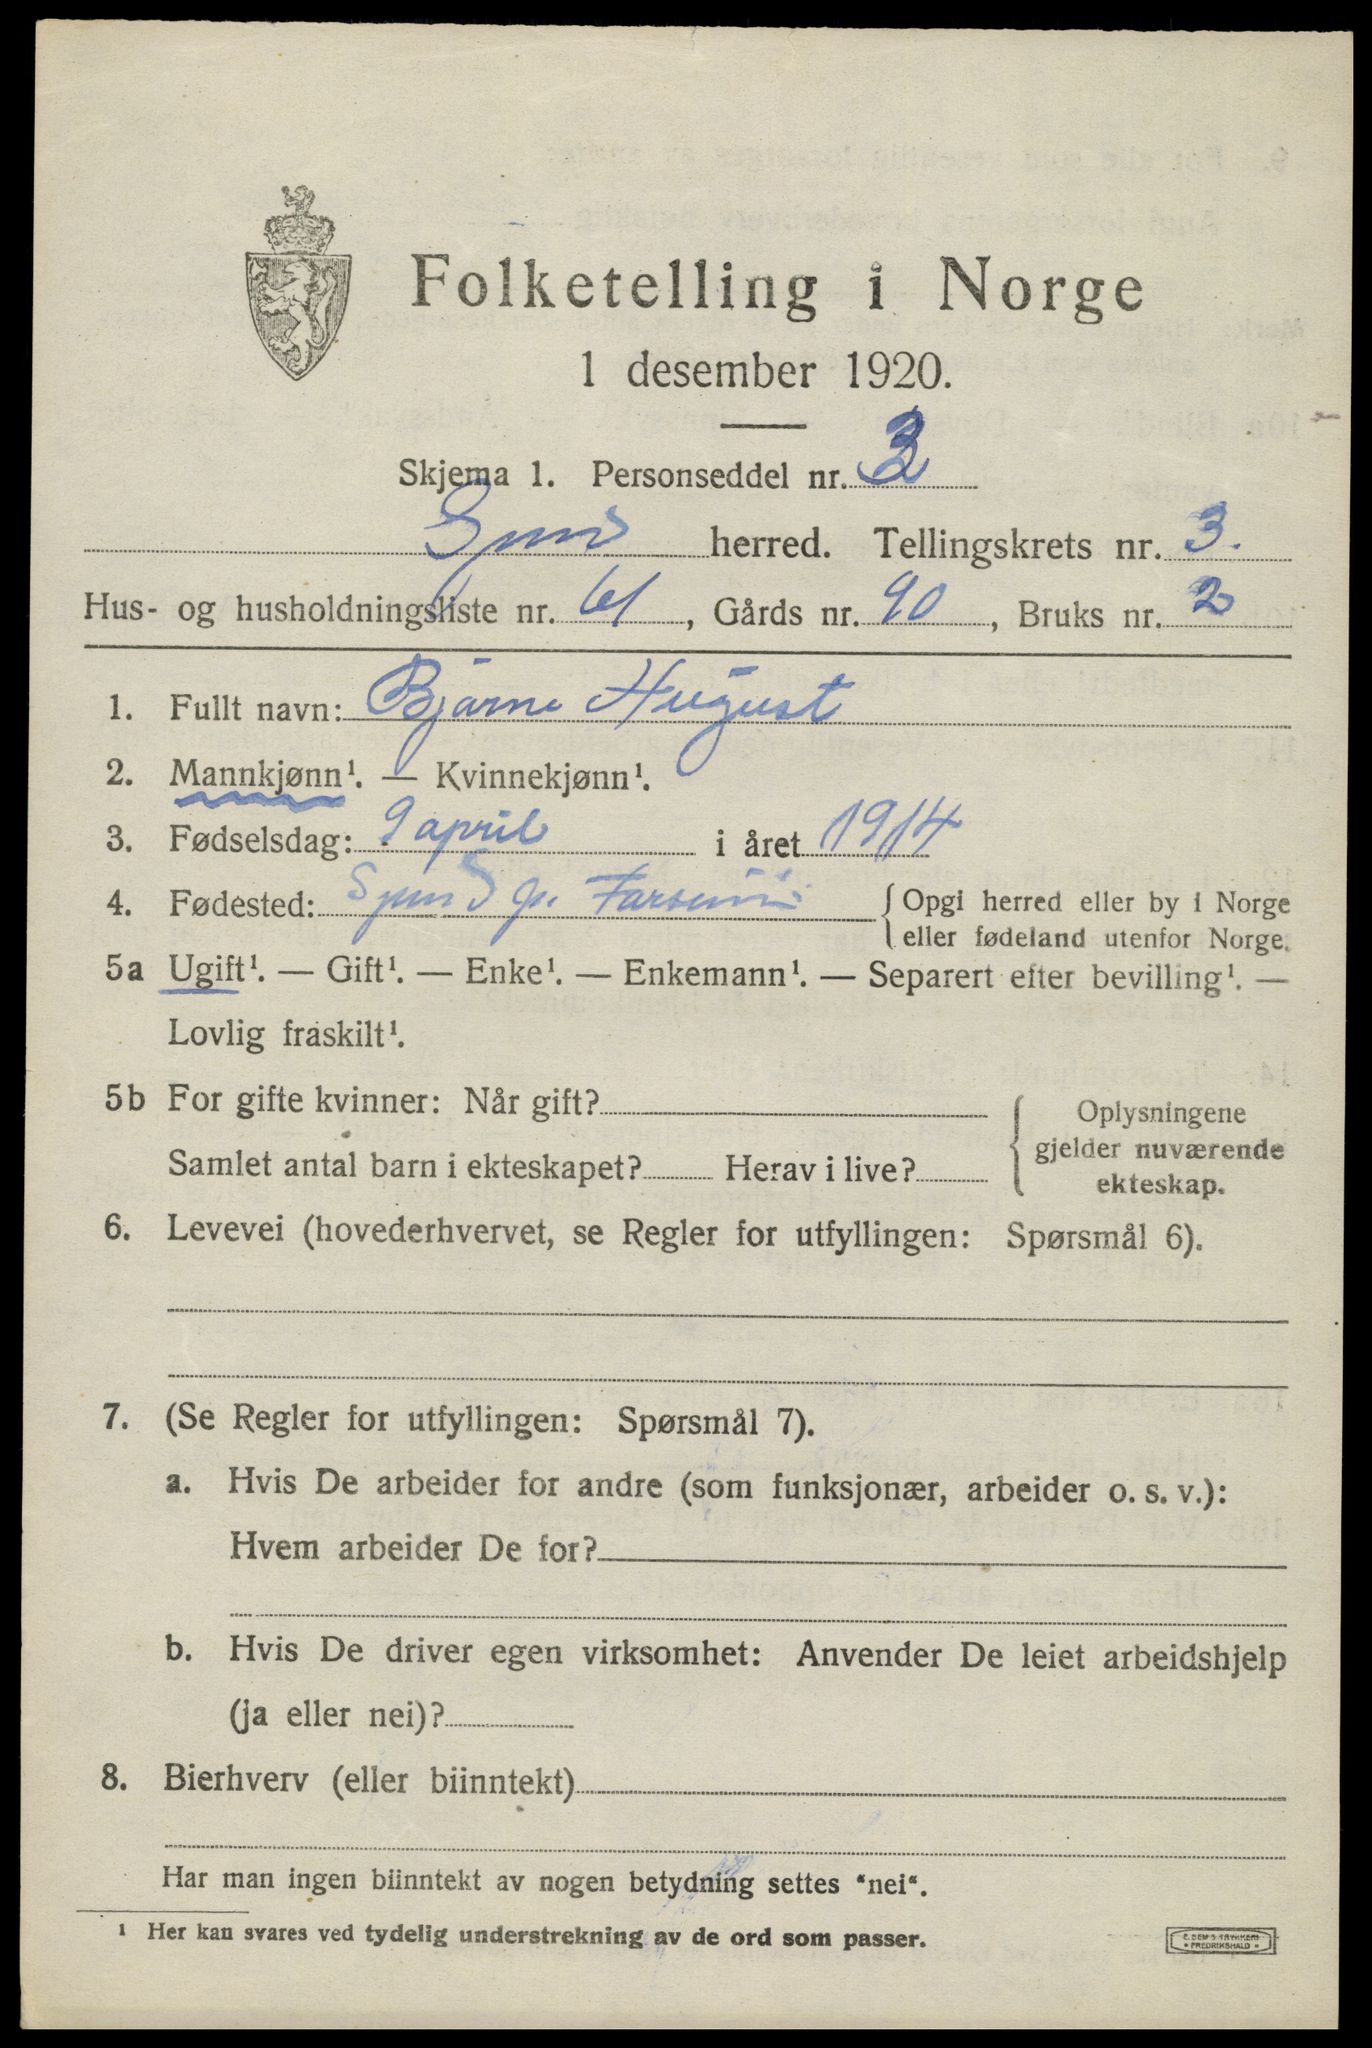 Folketelling i Norge
1 desember 1920.
Skjema 1. Personseddel nr. 3
Spind herred. Tellingskrets nr. 3.
Hus- og husholdningsliste nr. 61, Gårds nr. 90, Bruks nr. 2
1. Fullt navn: Bjarne August
2. Mannkjønn¹. — Kvinnekjønn¹.
3. Fødselsdag: 9 april i året 1914
4. Fødested: Spind { Opgi herred eller by i Norge
eller fødeland utenfor Norge.
5a Ugift¹. — Gift¹. — Enke¹. — Enkemann¹. — Separert efter bevilling¹. —
Lovlig fraskilt¹.
5b For gifte kvinner: Når gift? { Oplysningene
gjelder nuværende
Samlet antal barn i ekteskapet? Herav i live?
ekteskap.
6. Levevei (hovederhvervet, se Regler for utfyllingen: Spørsmål 6).
7. (Se Regler for utfyllingen: Spørsmål 7).
a. Hvis De arbeider for andre (som funksjonær, arbeider o. s. v.):
Hvem arbeider De for?
b. Hvis De driver egen virksomhet: Anvender De leiet arbeidshjelp
(ja eller nei)?
8. Bierhverv (eller biinntekt)
Har man ingen biinntekt av nogen betydning settes "nei".
¹ Her kan svares ved tydelig understrekning av de ord som passer.